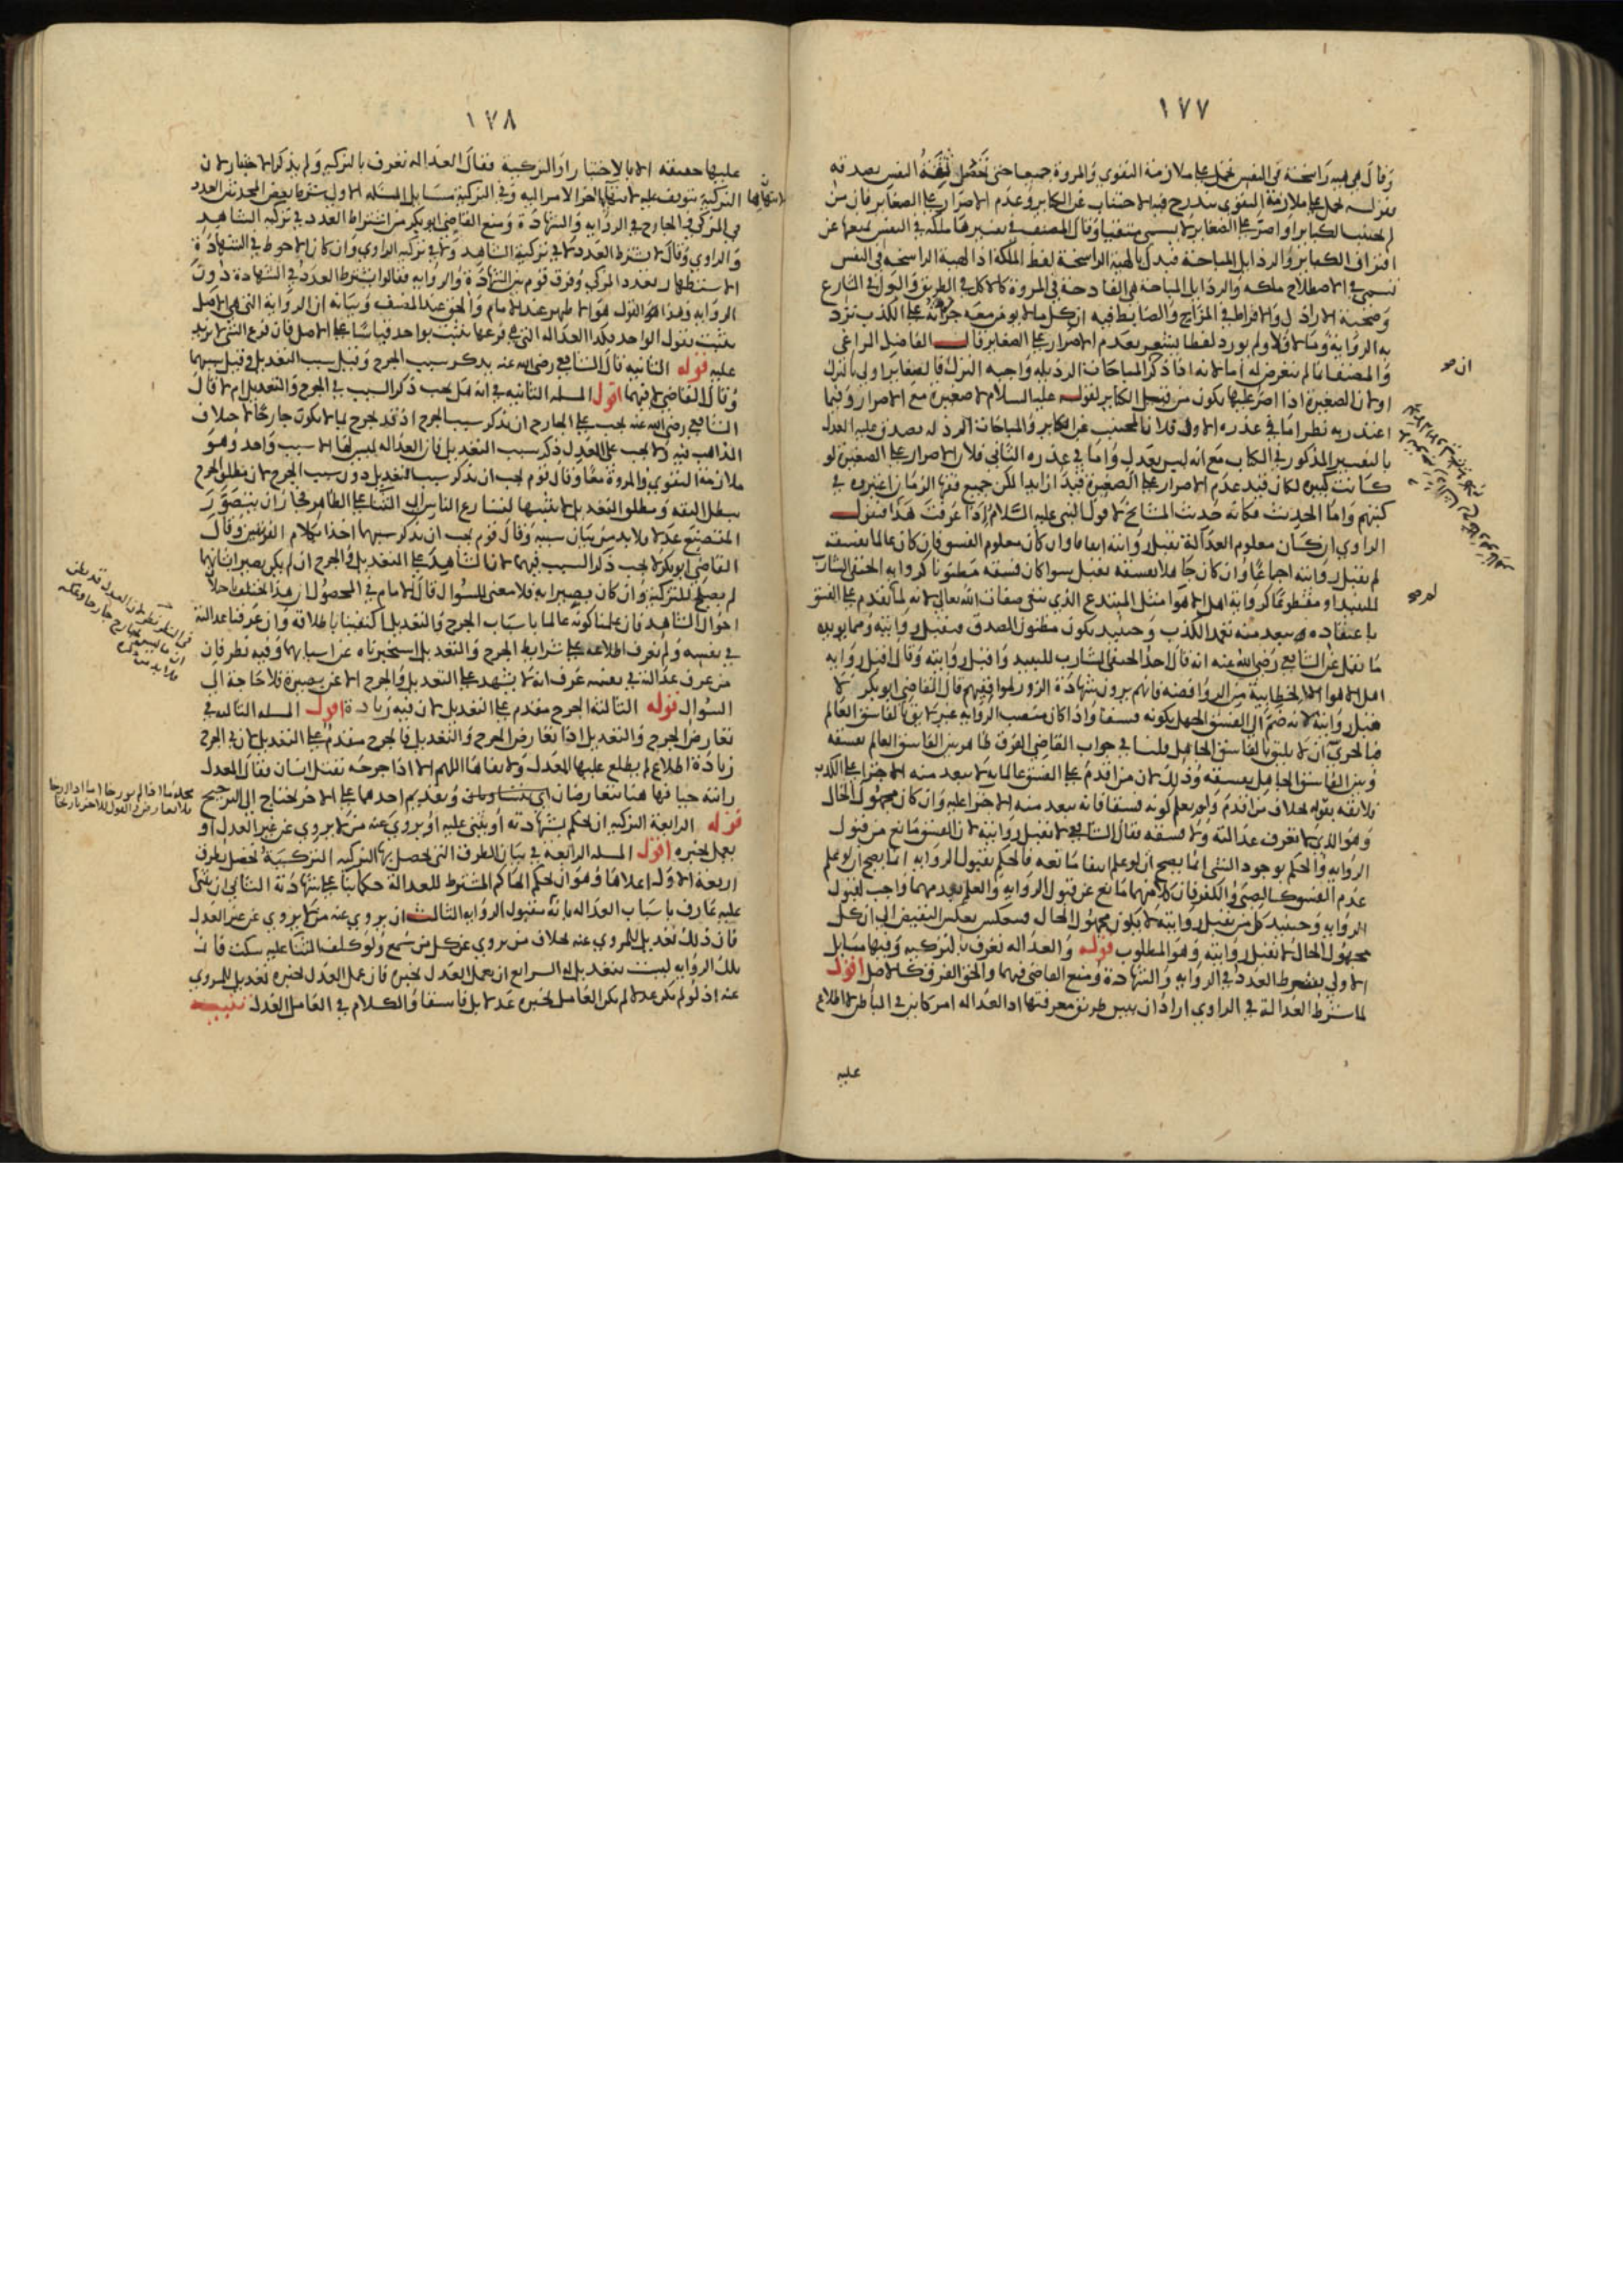 ١٧٧
وقال هي هيئة راسخة في النفس تحمل على ملازمة التقوى والمروة جميعا حتى تحصل ثقة النفس بصدقه
لم يجتنب الكباير او اصر على الصغاير لا يسمى متقيا وقال المصنف في تفسيرها ملكة في النفس تمنعها عن
اقتراف الكباير والرذايل المباحة فبدل بالهيئة الراسخة لفظ الملكة اذ الهيئة الراسخة في النفس
تسمى في الاصطلاح ملكة والرذايل المباحة هي القادحة في المروة كالاكل في الطريق والبول في الشارع
وصحبة الاراذل والافراط في المزاح والضابط فيه ان كل ما لا يؤمن معه جراته على الكذب ترد
به الرواية وما لا فلا ولم يورد لفظا يشعر بعدم الاصرار على الصغاير قال الفاضل المراغي
والمصنف لم يتعرض له اما لانه اذا ذكر المباحات الرذيلة واجبة الترك فالصغاير اولى بالترك
او لان الصغيرة اذا اصر عليها يكون من قبيل الكباير لقوله عليه السلام لا صغيرة مع الاصرار وفيما
اعتذر به نظر اما في عذره الاول فلان المجتنب عن الكباير والمباحات الرذلة يصدق عليه العدل
بالتفسير المذكور في الكتاب مع انه ليس بعدل واما في عذره الثاني فلان الاصرار على الصغيرة لو
كانت كبيرة لكان قيد عدم الاصرار على الصغيرة قيدا زايدا لكن جميع فقها الزمان اعتبروه في
كتبهم واما الحديث فكانه حديث المشايخ لا قول النبي عليه السلام اذا عرفت هذا فنقول
الراوي ان كان معلوم العدالة تقبل روايته اتفاقا وان كان معلوم الفسق فان كان عالما بفسقه
لم تقبل روايته اجماعا وان كان جاهلا بفسقه تقبل سوا كان فسقه مظنونا كرواية الحنفي الشارب
للنبيذ او مقطوعا كرواية اهل الاهوا مثل المبتدع الذي ينفي صفات الله تعالى لانه لما تقدم على الفسق
باعتقاده يبعد منه تعمد الكذب وحينئذ يكون مظنون الصدق فتقبل روايته ومما يويده
ما نقل عن الشافعي رضي الله عنه انه قال احد الحنفي الشارب للنبيذ واقبل روايته وقال اقبل رواية
اهل الاهوا الا الخطابية من الروافضة فانهم يرون شهادة الزور لموافقيهم قال القاضي ابو بكر لا
تقبل روايته لانه ضم الى الفسق الجهل بكونه فسقا واذا كان منصب الرواية غير لايق بالفاسق العالم
فبالحري ان لا يليق بالفاسق الجاهل قلنا في جواب القاضي الفرق ظاهر بين الفاسق العالم بفسقه
وبين الفاسق الجاهل بفسقه وذلك لان من اقدم على الفسق عالما به لا يبعد منه الاجترا على الكذب
فلا ثقة بقوله بخلاف من اقدم ولم يعلم كونه فسقا فانه يبعد منه الاجترا عليه وان كان مجهول الحال
وهو الذي لا تعرف عدالته ولا فسقه فقال الشافعي لا تقبل روايته لان الفسق مانع من قبول
الرواية والحكم بوجود الشي انما يصح ان لو علم انتفا مانعه فالحكم بقبول الرواية انما يصح ان لو علم
عدم الفسق كالصبى والكفر فان كلا منهما مانع عن قبول الرواية والعلم بعدمهما واجب لقبول
الرواية وحينئذ كل من تقبل روايته لا يكون مجهول الحال فينعكس بعكس النقيض الى ان كل
مجهول الحال لا تقبل روايته وهو المطلوب قوله والعدالة تعرف بالتزكية وفيها مسايل
الاولى يشترط العدد في الرواية والشهادة ومنع القاضي فيهما والحق الفرق كالاصل اقول
لما شرط العدالة في الراوي اراد ان يبين طريق معرفتها اذ العدالة امر كاين في الباطن لا اطلاع
عليه
١٧٨
عليها حقيقة الا بالاختبار او التزكية فقال العدالة تعرف بالتزكية ولم يذكر الاختبار لان
التزكية تتوقف عليه لانتهاء اخر الامر اليه وفي التزكية مسايل المسئلة الاولى شرط بعض المحدثين العدد
في المزكي والجارح في الرواية والشهادة ومنع القاضي ابو بكر من اشتراط العدد في تزكية الشاهد
والراوي وقال لا يشترط العدد لا في تزكية الشاهد ولا في تزكية الراوي وان كان الاحوط في الشهادة
الاستظهار بعدد المزكي وفرق قوم بين الشهادة والرواية فقالوا يشترط العدد في الشهادة دون
الرواية وهذا القول هو الاظهر عند الامام والحق عند المصنف وبيانه ان الرواية التي هي الاصل
تثبت بقول الواحد فكذا العدالة التي هي فرعها تثبت بواحد قياسا على الاصل فان فرع الشي لا يزيد
عليه قوله الثانية قال الشافعي رضي الله عنه يذكر سبب الجرح وقيل سبب التعديل وقيل سببهما
وقال القاضي لا فيهما اقول المسئلة الثانية في انه هل يجب ذكر السبب في الجرح والتعديل ام لا قال
الشافعي رضي الله عنه يجب على الجارح ان يذكر سبب الجرح اذ قد يجرح بما لا يكون جارحا لاختلاف
المذاهب فيه ولا يجب على المعدل ذكر سبب التعديل فان العدالة ليس لها الا سبب واحد وهو
ملازمة التقوى والمروة معا وقال قوم يجب ان يذكر سبب التعديل دون سبب الجرح لان مطلق الجرح
يبطل الثقة ومطلق التعديل لا يثبتها لتسارع الناس الى الثناء على الظاهر فجاز ان يتصور
المتصنع عدلا فلا بد من بيان سببه وقال قوم يجب ان يذكر سببهما اخذا بكلام الفريقين وقال
القاضي ابو بكر لا يجب ذكر السبب فيهما لان الشاهد على التعديل والجرح ان لم يكن بصيرا بهما
لم يصلح للتزكية وان كان بصيرا به فلا معنى للسؤال قال الامام في المحصول ان هذا يختلف باختلاف
احوال الشاهد فان علمنا كونه عالما باسباب الجرح والتعديل اكتفينا باطلاقه وان عرفنا عدالته
في نفسه ولم نعرف اطلاعه على شرايط الجرح والتعديل استخبرناه عن اسبابهما وفيه نظر فان
من عرف عدالته في نفسه عرف انه لا يشهد على التعديل والجرح الا عن بصيرة فلا حاجة الى
السؤال قوله الثالثة الجرح مقدم على التعديل لان فيه زيادة اقول المسئلة الثالثة في
تعارض الجرح والتعديل اذا تعارض الجرح والتعديل فالجرح مقدم على التعديل لان في الجرح
زيادة اطلاع لم يطلع عليها المعدل ولا نفاها اللهم الا اذا جرحه بقتل انسان فقال المعدل
رايته حيا فها هنا يتعارضان اي يتساويان وتقديم احدهما على الاخر يحتاج الى الترجيح
قوله الرابعة التزكية ان يحكم بشهادته او يثني عليه او يروي عنه من لا يروي عن غير العدل او
يعمل بخبره اقول المسئلة الرابعة في بيان الطرق التي تحصل بها التزكية التزكية تحصل بطرق
اربعة الاول اعلاها وهو ان يحكم الحاكم المشترط للعدالة حكما بناء على شهادته الثاني ان يثني
عليه عارف باسباب العدالة بانه مقبول الرواية الثالث ان يروي عنه من لا يروي عن غير العدل
فان ذلك تعديل للمروي عنه بخلاف من يروي عن كل من سمع ولو كلف الثنا عليه سكت فان
تلك الرواية ليست بتعديل له الرابع ان يعمل العدل بخبره فان عمل العدل بخبره تعديل للمروي
عنه اذ لو لم يكن عدلا لم يكن العامل بخبره عدلا بل فاسقا والكلام في العامل العدل تنبيه